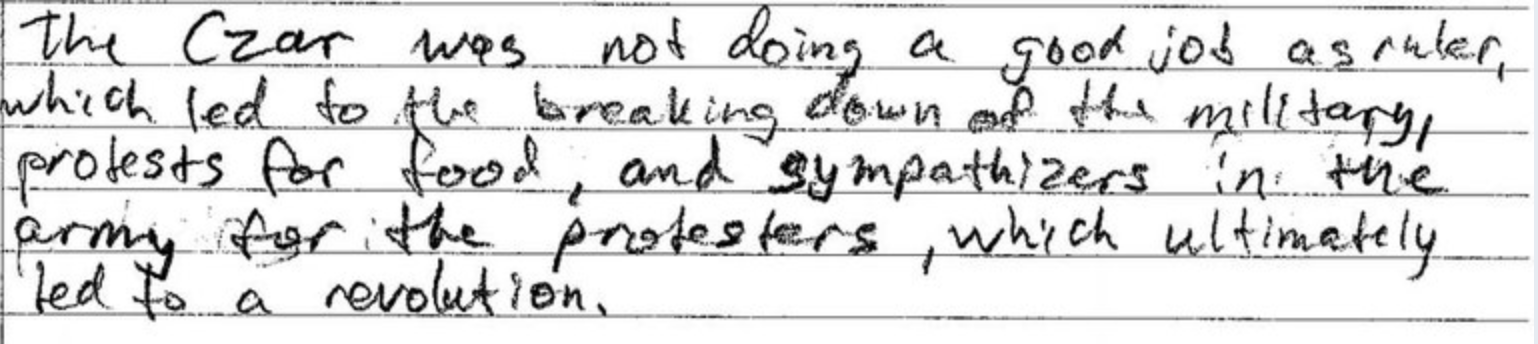 The Czar was not doing a good job as ruler,
which led to the breaking down of the military,
protests for food, and sympathizers in the
army for the protesters, which ultimately
led to a revolution.